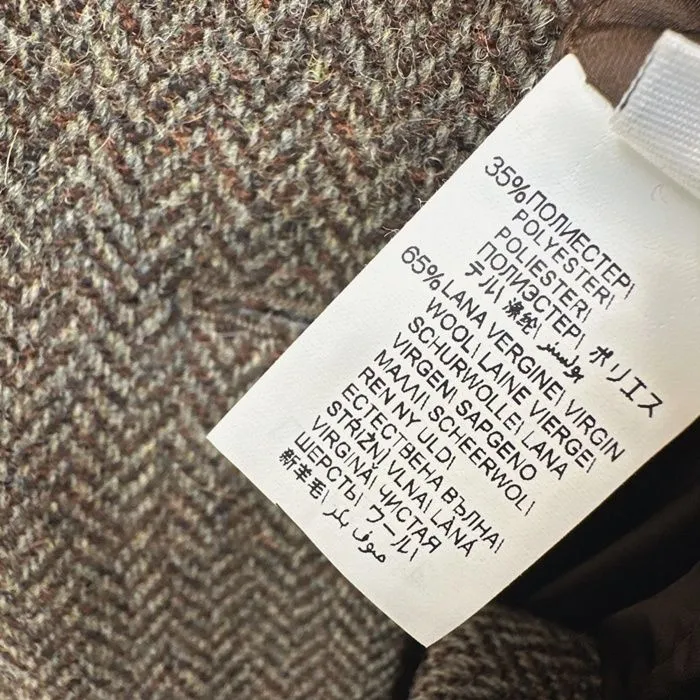 35%ПОЛИЕСТЕР\
POLYESTER\
POLIESTER\
ПОЛИЭСТЕР\ ポリエス
テル\ 涤纶\ بوليستر
65%LANA VERGINE\ VIRGIN
WOOL\ LAINE VIERGE\
SCHURWOLLE\ LANA
VIRGEN\ SAPGENO
ΜΑΛΛΙ\ SCHEERWOL\
REN NY ULD\
ЕСТЕСТВЕНА ВЪЛНА\
STŘIŽNÍ VLNA\ LÂNĂ
VIRGINĂ\ ЧИСТАЯ
ШЕРСТЬ\ ウール\
新羊毛\ صوف بكر